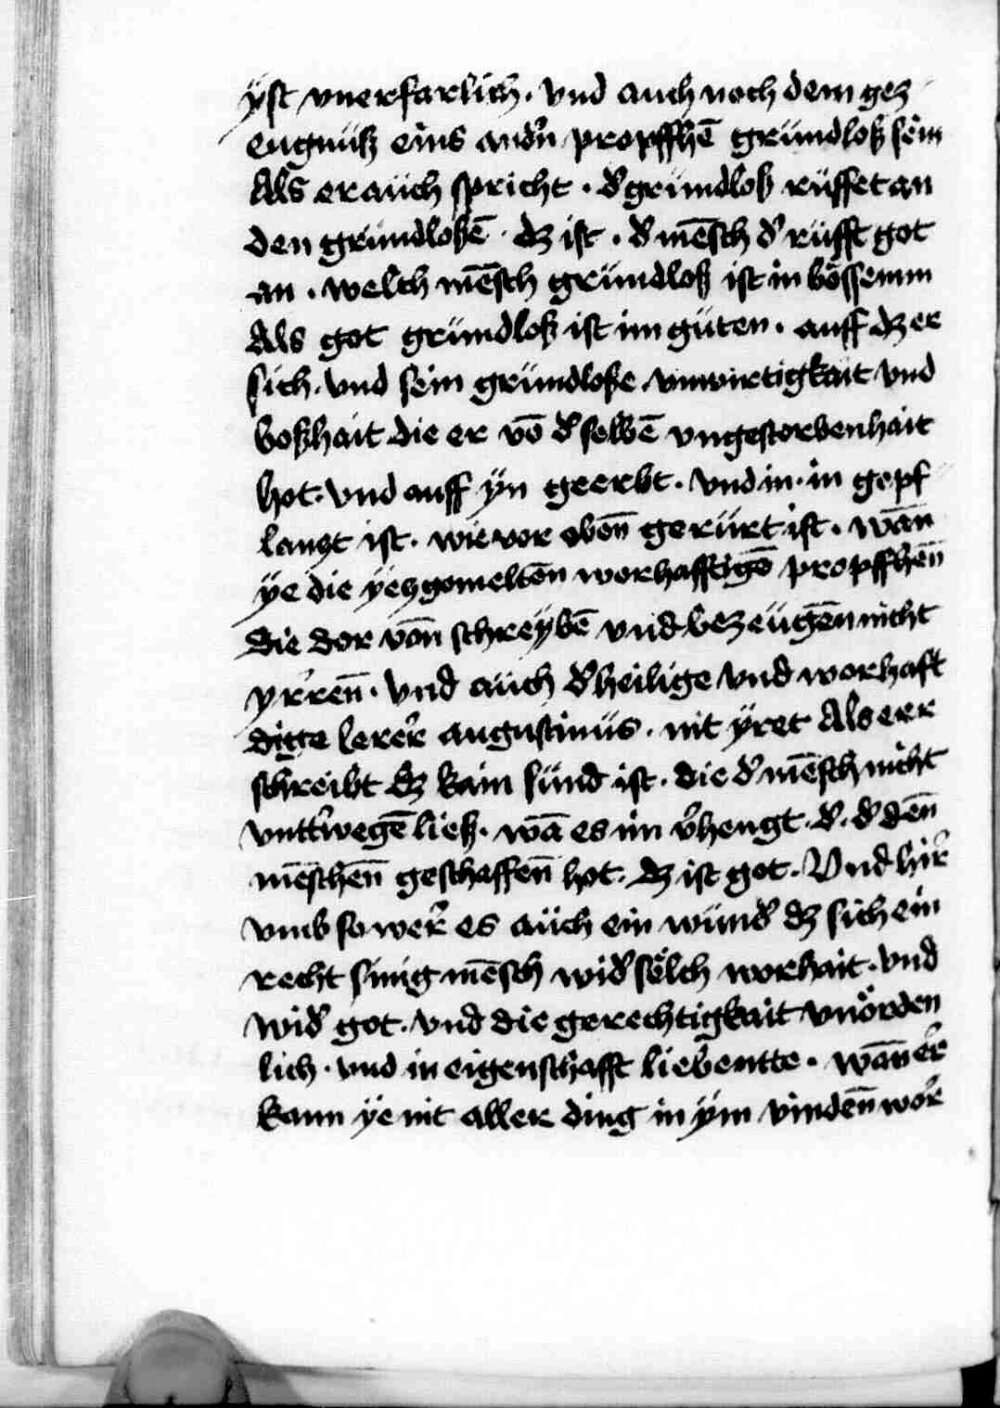 ÿst vnerfarlich · vnd auch noch dem gez
eugnüß eins and'n propffhē gründloß sein
Als er aüch spricht · d' gründloß rüffet an
den gründloßē · dz ist · d' mēsch d' rüfft got
an · welch mēsch gründloß ist in bössemm
Als got gründloß ist im güten · auff dz er
sich · vnd sein gründloße vnwirtigkait vnd
boßhait die er vō d' selbē vngestorbenhait
hot · vnd auff ÿn geerbt · vnd in · in gepf
lanzt ist · wie vor obē̄n gerürt ist · wān
ÿe die ÿezgemeltēn worhafftigē propffhēn
die dor vōn schreÿbē vnd bezeügēn nicht
yrrēn · vnd aüch d' heilige vnd worhaft
dige lerer augustinüs · nit ÿret Als err
schreibt dz kain sünd ist · die d' mēsch nicht
vntt'wegē ließ · wā es im v'hengt · d' · d' dēn
mēschēn geschaffēn hot · dz ist got · Vnd hir
vmb so wer es aüch ein wünd' dz sich ein
recht sinig mēsch wid' sölch worhait · vnd
wid' got · vnd die gerechtigkait vnörden
lich · vnd in eigenschafft liebentte · wān er
kann ÿe nit aller ding in ÿm vindēn wor